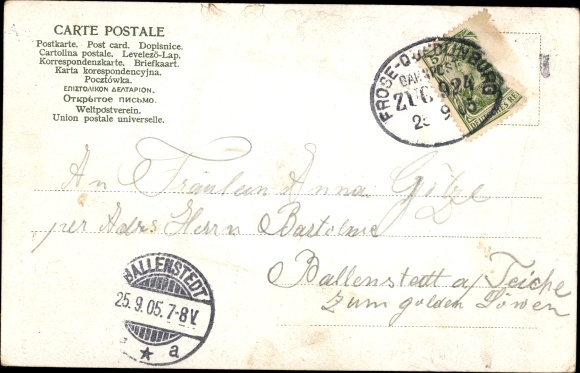 CARTE POSTALE
Postkarte. Post card. Dopisnice.
Cartolina postale. Levelező-Lap.
Korrespondenzkarte. Briefkaart.
Karta korespondencyjna.
Pocztówka.
ΕΠΙΣΤΟΛΙΚΟΝ ΔΕΛΤΑΡΙΟΝ.
Открытое письмо.
Weltpostverein.
Union postale universelle.
FROSE-QUEDLINBURG
BAHNPOST
ZUG 924
An Fräulein Anna Götze
per Adrs Herrn Bartolme
Ballenstedt a/Teiche
zum golden Löwen
BALLENSTEDT
25.9.05.7-8V.
★ a